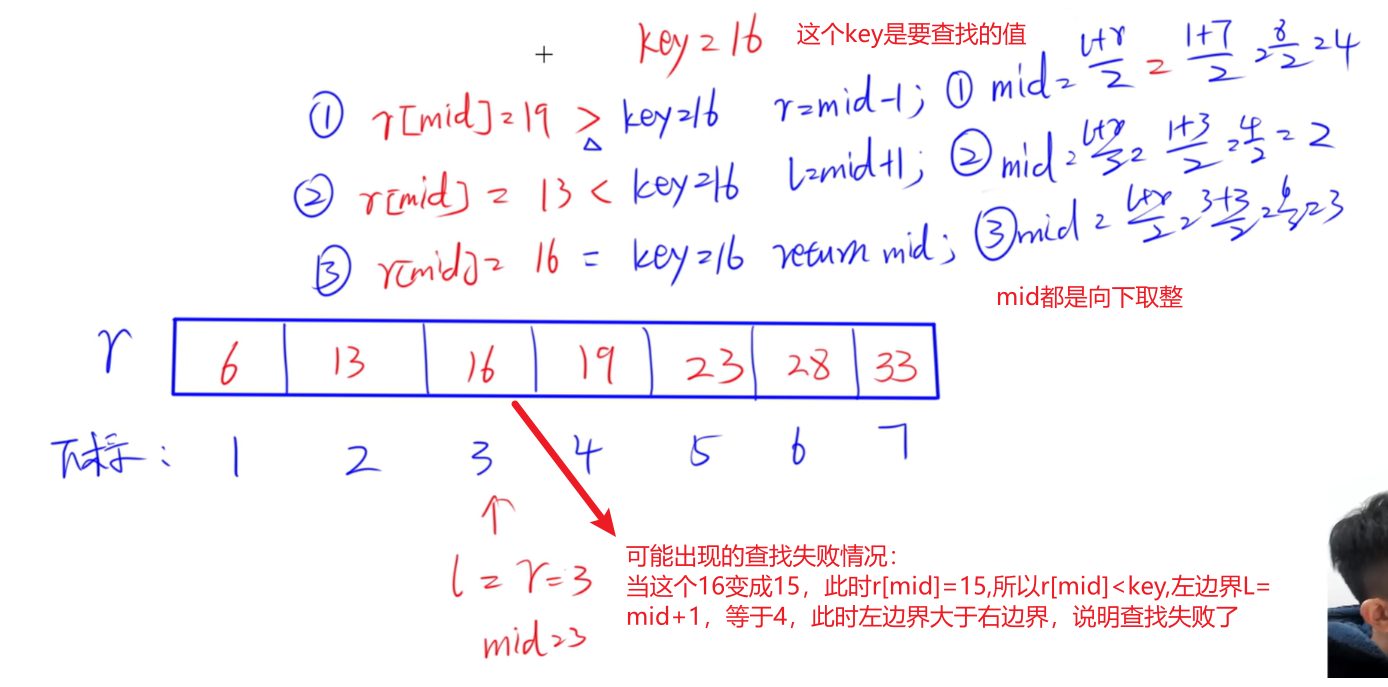 key=16 这个key是要查找的值
① r[mid]=19 > key=16 r=mid-1; ① mid=l+r/2=1+7/2=8/2=4
② r[mid]=13<key=16 l=mid+1; ② mid=l+r/2=1+3/2=4/2=2
③ r[mid]=16=key=16 return mid; ③ mid=l+r/2=3+3/2=6/2=3
mid都是向下取整
r 6 13 16 19 23 28 33
下标: 1 2 3 4 5 6 7
↑
l=r=3
mid=3
可能出现的查找失败情况:
当这个16变成15，此时r[mid]=15,所以r[mid]<key,左边界L=
mid+1，等于4，此时左边界大于右边界，说明查找失败了